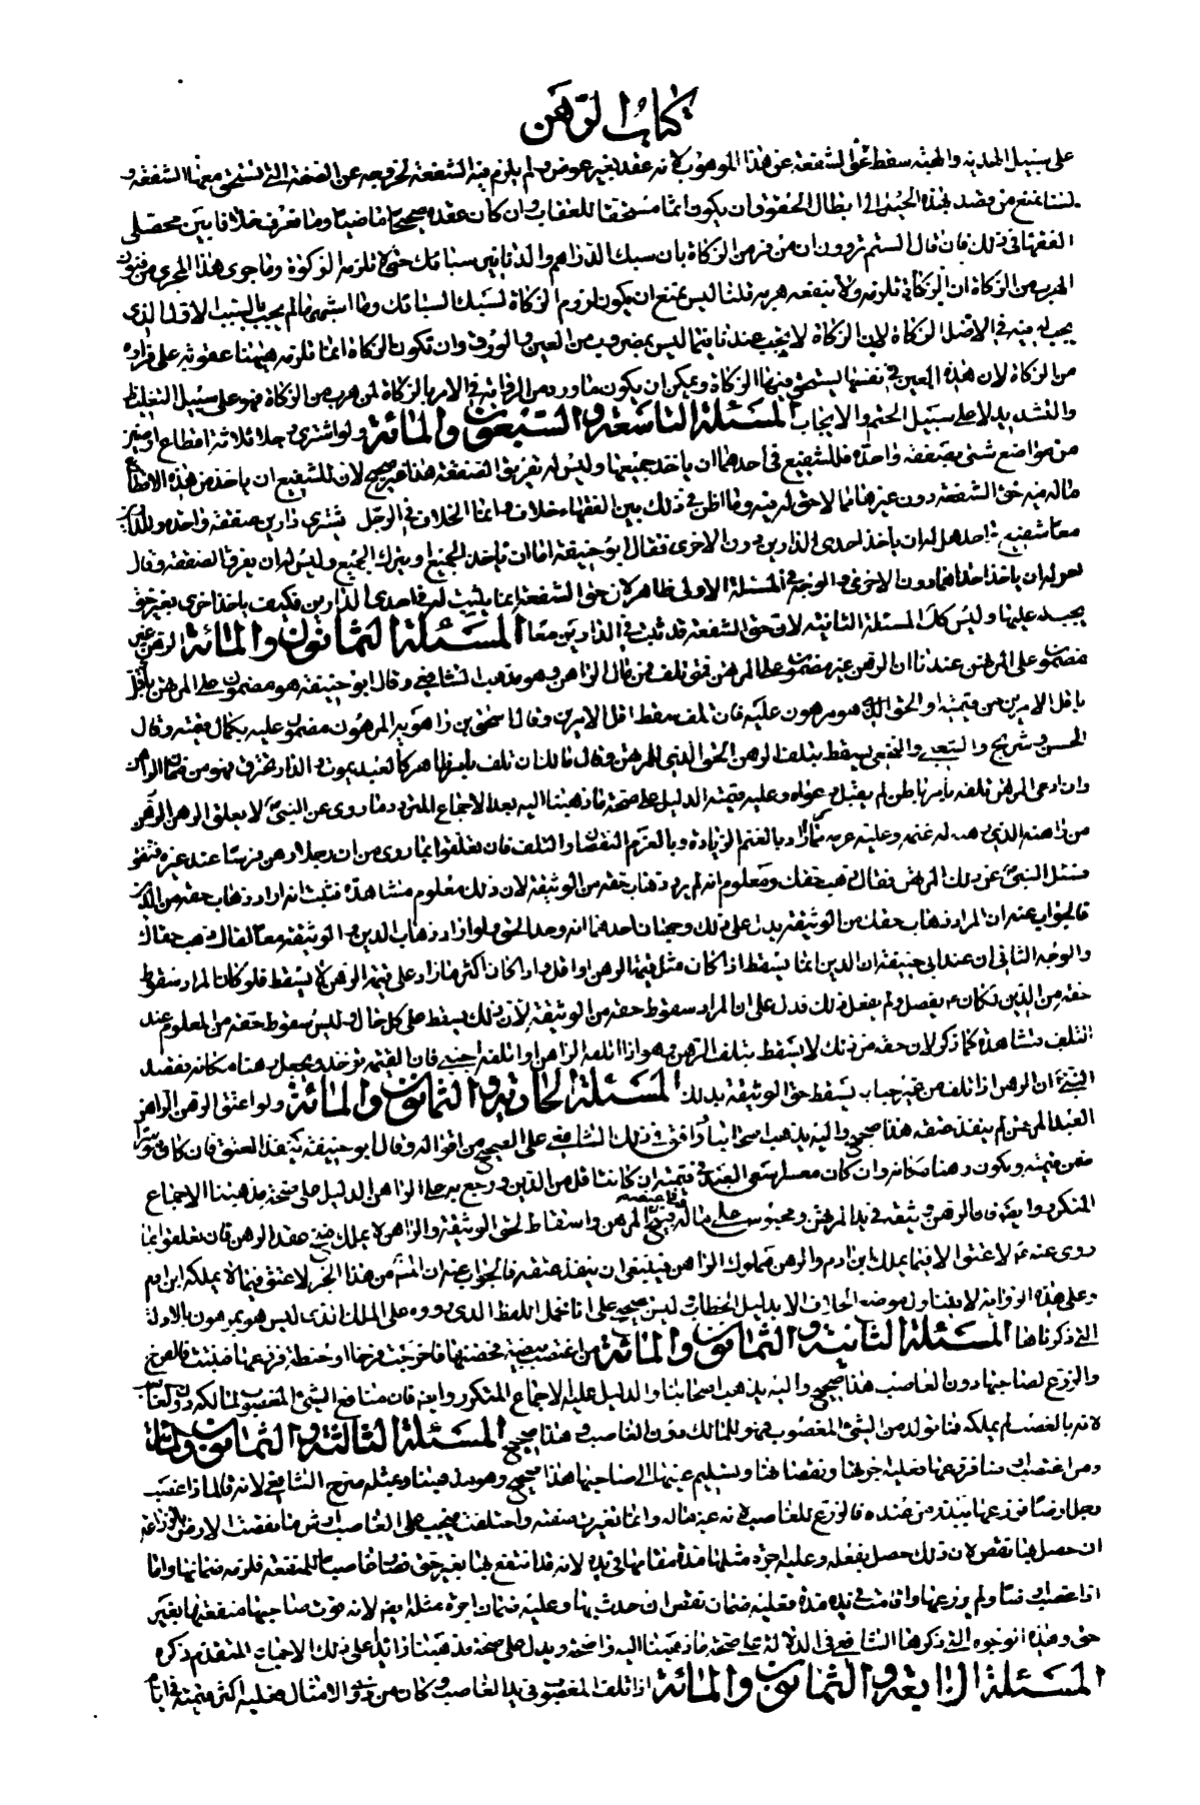 كتاب الرهن
على سبيل الهدية والهبة سقط حق الشفعة عن هذا الموهوب لانه عقد بغير عوض ولم يلزم فيه الشفعة لخروجه عن الصفة التي تستحق معها الشفعة و
لسنا نمنع من قصد بهذه الحيل الى ابطال الحقوق ان يكون اثما مستحقا للعقاب وان كان عقده صحيحا ماضيا وما نعرف خلافا بين محصلي
الفقهاء في ذلك فان قال الستم تروون ان من فر من الزكاة بان سبك الدراهم والدنانير سبائك حتى لا تلزمه الزكوة وما جرى هذا المجرى من فنون
الهرب من الزكاة ان الزكاة تلزمه ولا ينفعه هربه قلنا ليس يمتنع ان يكون لزوم الزكاة لسبك السبائك وما اشبهها لم يجب بالسبب الاول الذي
يجب له فيه في الاصل الزكاة لان الزكاة لا تجب عندنا فيما ليس بمضروب من العين والورق وان تكون الزكاة انما تلزمه هيهنا عقوبة على فراره
من الزكاة لان هذه العين في نفسها يستحق فيها الزكاة ويمكن ان يكون ما ورد من الرواية في الامر بالزكاة لمن هرب من الزكاة فهو على سبيل التغليظ
والتشديد لا على سبيل الحتم والايجاب المسئلة التاسعة والسبعون والمائة ولو اشترى رجلا ثلاثة اقطاع ارضين
من مواضع شتى بصفقة واحدة فللشفيع في احدهما ان ياخذ جميعها وليس له تفريق الصفقة هذا غير صحيح لان للشفيع ان ياخذ من هذه الاقطاع
ماله فيه حق الشفعة دون غيرها مما لا حق له فيه وما اظن في ذلك بين الفقهاء خلاف وانما الخلاف في الرجل يشتري دارين صفقة واحدة وللدارين
معا شفيع واحد هل له ان ياخذ احدى الدارين دون الاخرى فقال ابو حنيفة اما ان ياخذ الجميع او يترك الجميع وليس له ان يفرق الصفقة وقال
زفر له ان ياخذ احداهما دون الاخرى والوجه في المسئلة الاولى ظاهر لان حق الشفعة انما يثبت له في احدى الدارين فكيف ياخذ اخرى بغير حق
يجب له عليها وليس كك المسئلة الثانية لان حق الشفعة قد ثبت في الدارين معا المسئلة الثمانون والمائة الرهن غير
مضمون على المرتهن عندنا ان الرهن غير مضمون على المرتهن فمتى تلف فمن مال الراهن وهو مذهب الشافعي وقال ابو حنيفة هو مضمون على المرتهن باقل
باقل الامرين من قيمته او الحق الذي هو مرهون عليه فان تلف سقط اقل الامرين وقال اسحق بن راهويه المرهون مضمون عليه بكمال قيمته وقال
الحسن وشريح والشعبي والنخعي يسقط بتلف الرهن الحق الذي للمرتهن وقال مالك ان تلف بامر ظاهر كالعبد يموت والدار تحترق فهو من ضمان الراهن
وان ادعى المرتهن تلفه بامر باطن لم يقبل دعواه وعليه قيمته الدليل على صحة ما ذهبنا اليه بعد الاجماع المتردد ما روى عن النبي لا يغلق الرهن الرهن
من راهنه الذي رهنه له غنمه وعليه غرمه فاراد بالغنم الزيادة وبالغرم النقصان والتلف فان تعلقوا بما روى من ان رجلا رهن فرسا عند غيره فنفق
فسئل النبي عن ذلك المرتهن فقال ذهب حقك ومعلوم انه لم يرد ذهاب حقه من الوثيقة لان ذلك معلوم مشاهدة فثبت انه اراد ذهاب حقه من الدين
فالجواب عنه ان المراد ذهاب حقك من الوثيقة يدل على ذلك وجهان احدهما انه وحد الحق ولو اراد ذهاب الدين والوثيقة معا لقال ذهب حقاك
والوجه الثاني ان عند ابي حنيفة ان الدين انما يسقط اذا كان مثل قيمة الرهن او اقل واذا كان اكثر ما زاد على قيمة الرهن لا يسقط فلو كان المراد سقوط
حقه من الدين لكان يفصل ولم يفعل ذلك فدل على ان المراد سقوط حقه من الوثيقة لان ذلك يسقط على كل حال وليس سقوط حقه من المعلوم عند
التلف مشاهدة كما ذكر لان حقه من ذلك لا يسقط بتلف الرهن وهو اذا اتلفه الراهن او اتلفه اجنبي فان القيمة تؤخذ ويجعل رهنا مكانه فقصد
النبي ان الرهن اذا تلف من غير جناية يسقط حق الوثيقة بذلك المسئلة الحادية والثمانون والمائة ولو اعتق الراهن
العبد المرتهن لم ينفذ عتقه هذا صحيح واليه يذهب اصحابنا ووافق في ذلك الشافعي على الصحيح من اقواله وقال ابو حنيفة ينفذ العتق فان كان موسرا
ضمن قيمته ويكون رهنا مكانه وان كان معسرا سعى العبد في قيمته ان كانت اقل من الدين ورجع به على الراهن الدليل على صحة مذهبنا الاجماع
المتكرر وايضا فان الرهن وثيقة في يد المرتهن ومحبوس على ماله وفي عتقه المرتهن واسقاط لحق الوثيقة والراهن لا يملك فسخ عقد الرهن فان تعلقوا بما
روى عنه لا عتق الا فيما يملك ابن ادم والرهن مملوك الراهن فينبغي ان ينفذ عتقه فالجواب عنه ان المتن من هذا الخبر لا عتق فيما لا يملكه ابن ادم
وعلى هذه الرواية لا يتناول موضع الخلاف الا بدليل الخطاب وليس بصحيح على انا نحمل اللفظ الذي رووه على الملك الذي ليس هو بمرهون بالادلة
التي ذكرناها المسئلة الثانية والثمانون والمائة من اغتصب بيضة فحضنها فاخرجت فرخا او حنطة فزرعها فنبتت فالفرخ
والزرع لصاحبها دون الغاصب هذا صحيح واليه يذهب اصحابنا والدليل عليه الاجماع المتكرر وايضا فان منافع الشيء المغصوب لمالكه دون الغاصب
لانه بالغصب لم يملكه فما تولد من الشيء المغصوب فهو للمالك دون الغاصب هذا صحيح المسئلة الثالثة والثمانون والمائة
ومن اغتصب ارضا فزرعها فعليه خراجها ونقصانها وتسليم عينها الى صاحبها هذا صحيح وهو مذهبنا وعليه صرح الشافعي لانه قال اذا غصب
رجل ارضا فزرعها ببذر من عنده فالزرع للغاصب لانه عين ماله وانما تغيرت صفته واختلفت فيجب على الغاصب ارش ما نقصت الارض بالزراعة
ان حصل بها نقص لان ذلك حصل بفعله وعليه اجرة مثلها مدة مقامها في يده لانه قد انتفع بها بغير حق فصار غاصبا للمنفعة فلزمه ضمانها واما
اذا غصب ارضا ولم يزرعها واقامت في يده مدة فعليه ضمان نقص ان حدث بها وعليه ضمان اجرة مثله ايضا لانه فوت صاحبها منفعتها بغير
حق وهذه الوجوه التي ذكرها الشافعي في الدلالة على صحة ما ذهبنا اليه واضحة ويدل على صحة مذهبنا زائدا على ذلك الاجماع المتقدم ذكره
المسئلة الرابعة والثمانون والمائة اذا تلف المغصوب في يد الغاصب وكان من ذوات الامثال فعليه اكثر قيمته في ايام